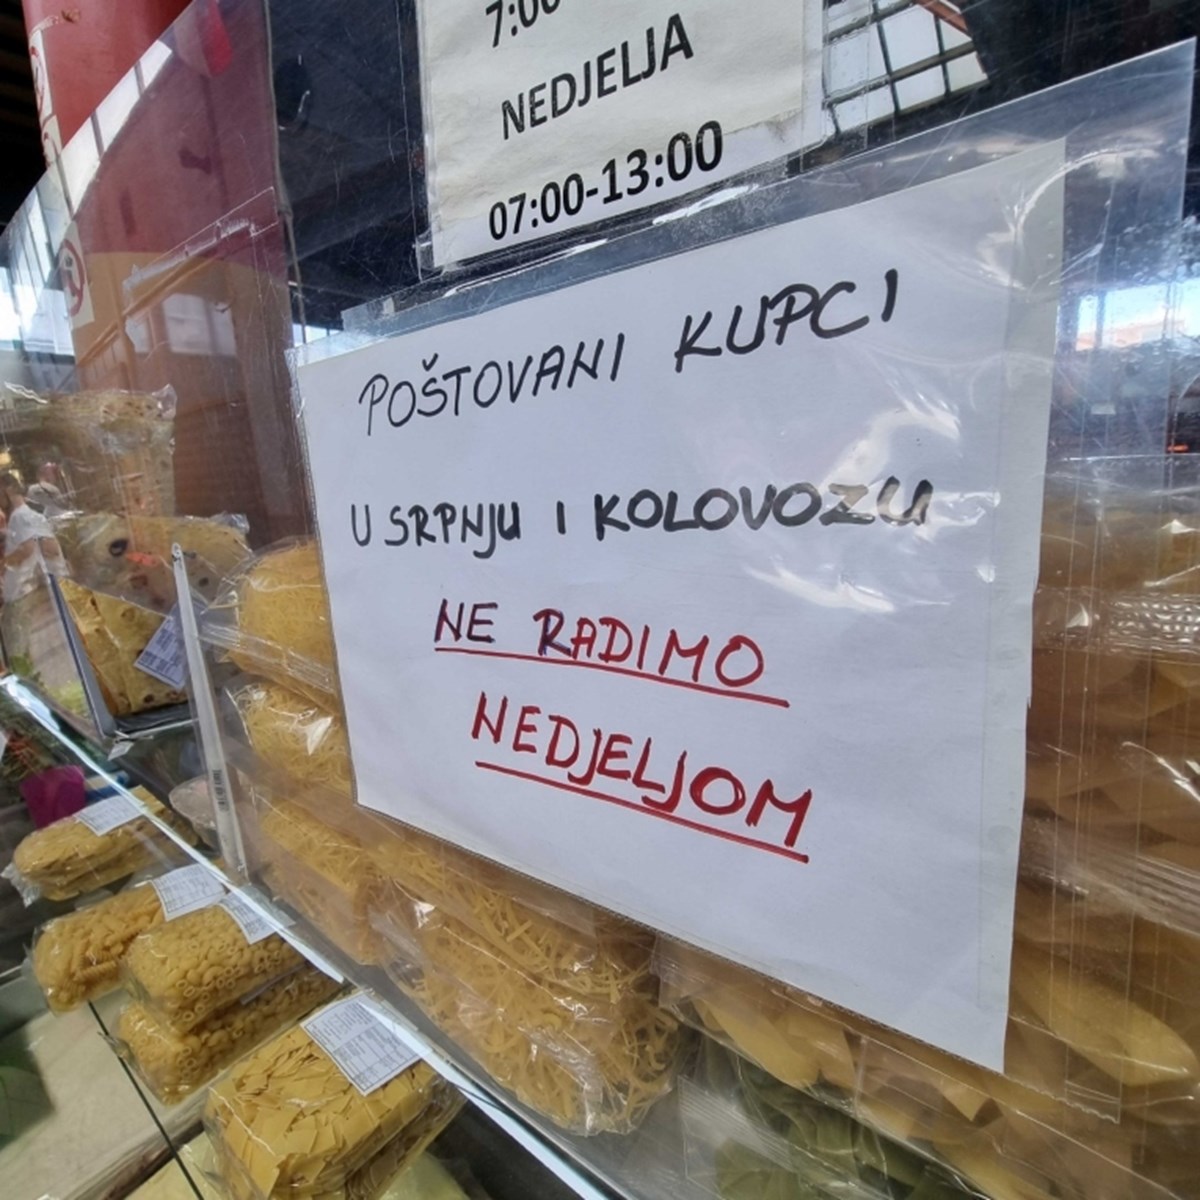 7:00
NEDJELJA
07:00-13:00
POŠTOVANI KUPCI
U SRPNJU I KOLOVOZU
NE RADIMO
NEDJELJOM